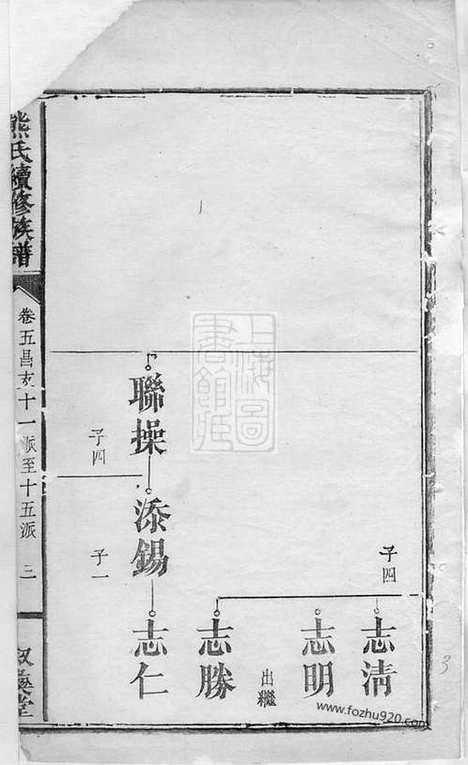 子四
志清
志明
出繼
志勝
聯操
子四
添錫
子一
志仁
熊氏續修族譜
卷五昌支十一派至十五派
三
堂
上海圖書館藏
3
www.fozhu920.com